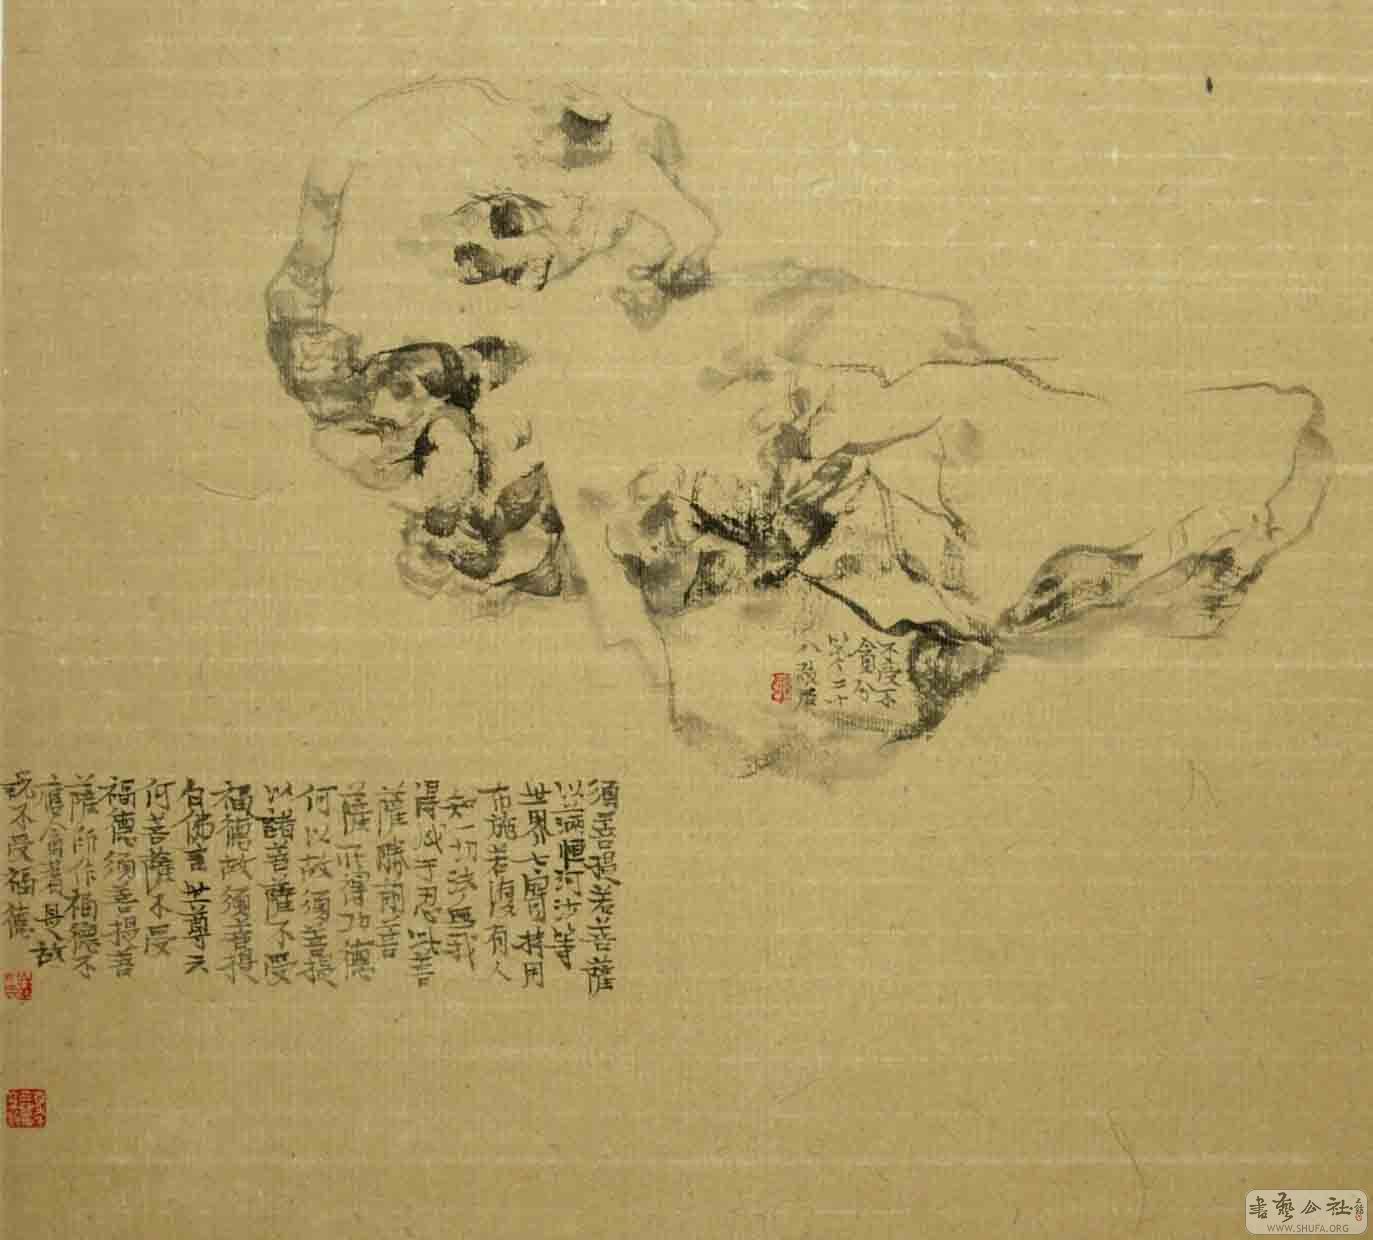 不受不
貪分
二十
八
須菩提若菩薩
以滿恒河沙等
世界七寶持用
布施若復有人
知一切法無我
得成于忍此菩
薩勝前菩
薩所得功德
何以故須菩提
以諸菩薩不受
福德故須菩提
白佛言世尊云
何菩薩不受
福德須菩提菩
薩所作福德不
應貪著是故
說不受福德
書藝公社
WWW.SHUFA.ORG